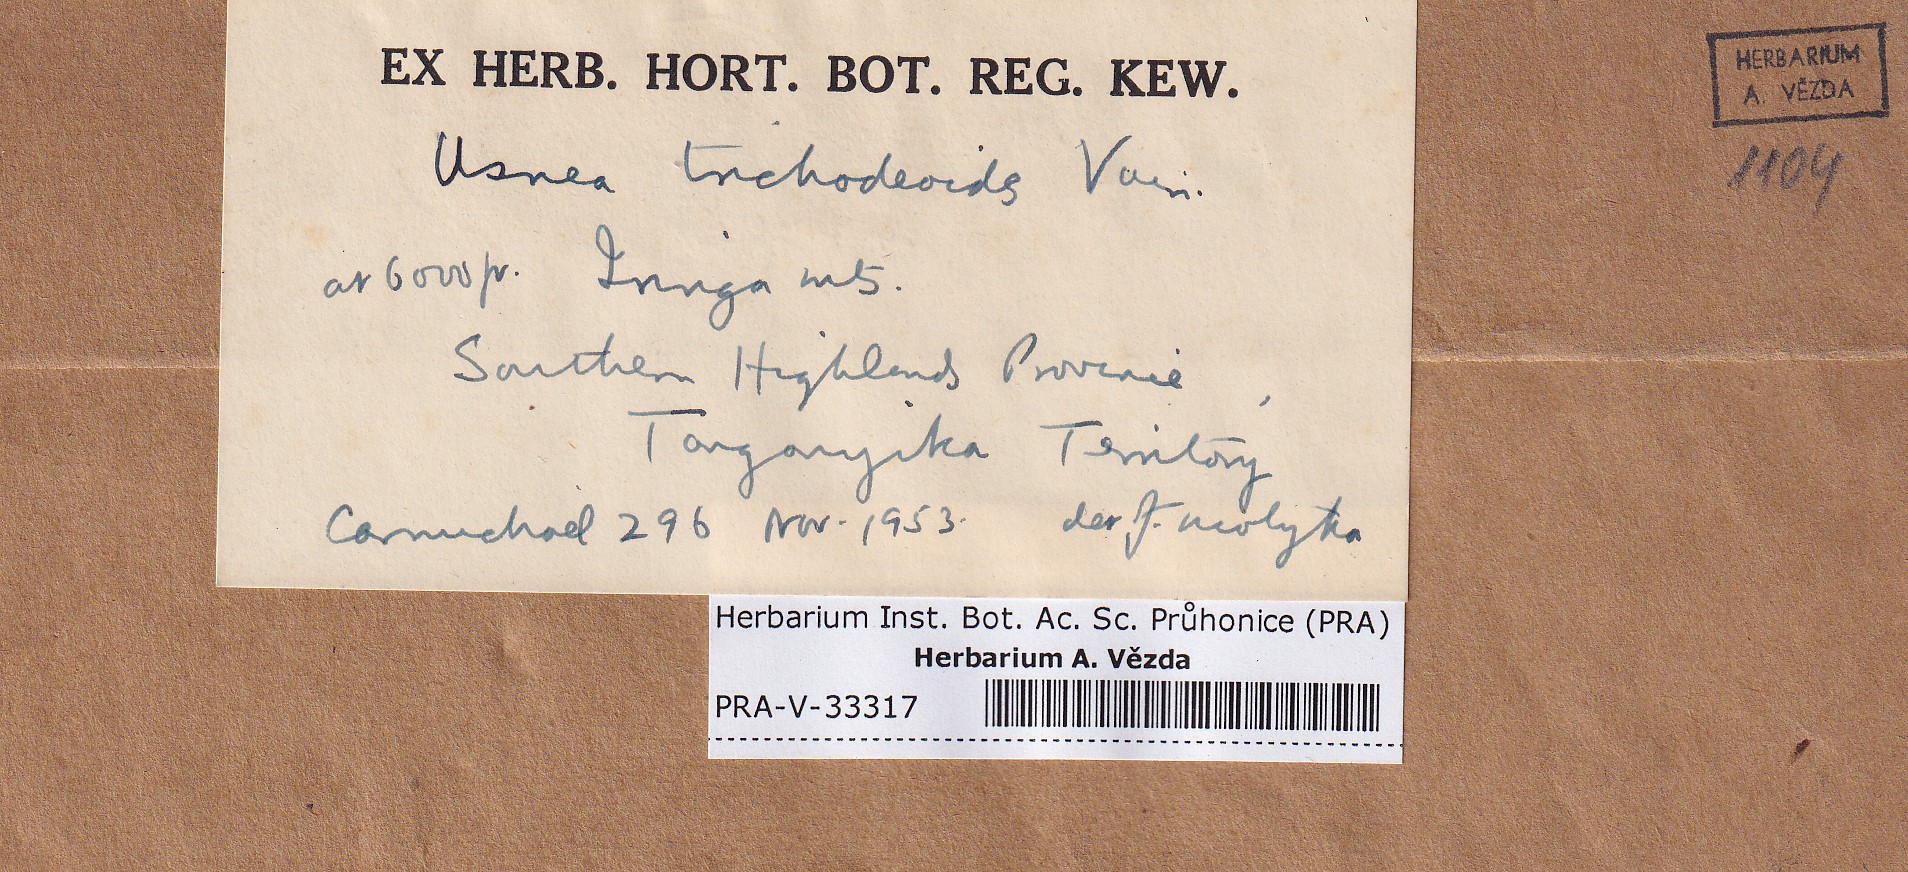 EX HERB. HORT. BOT. REG. KEW.
Usnea trichodeoides Vain.
at 6000 ft. Iringa mts.
Southern Highlands Province,
Tanganyika Territory
Carmichael 296 Nov. 1953. det J. Motyka
HERBARIUM
A. VĚZDA
1104
Herbarium Inst. Bot. Ac. Sc. Průhonice (PRA)
Herbarium A. Vězda
PRA-V-33317